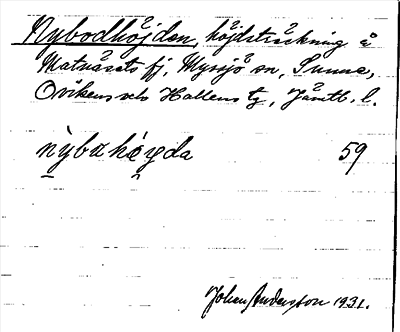 Nybodhöjden, höjdsträckning å
Matnäsets fj, Myssjö sn, Sunne,
Ovikens och Hallens tg, Jämtl. l.
nybɑhøyda 59
Johan Andersson 1931.